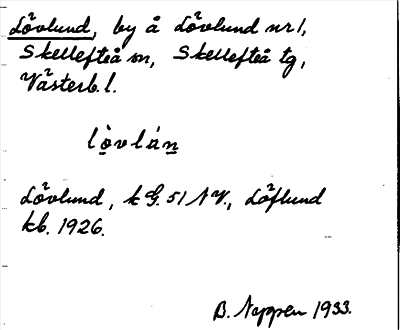 Lövlund, by å Lövlund nr 1,
Skellefteå sn, Skellefteå tg,
Västerb. l.
lòvlán
Lövlund, k G. 51 NV., Löflund
kb. 1926.
B. Nappen 1933.